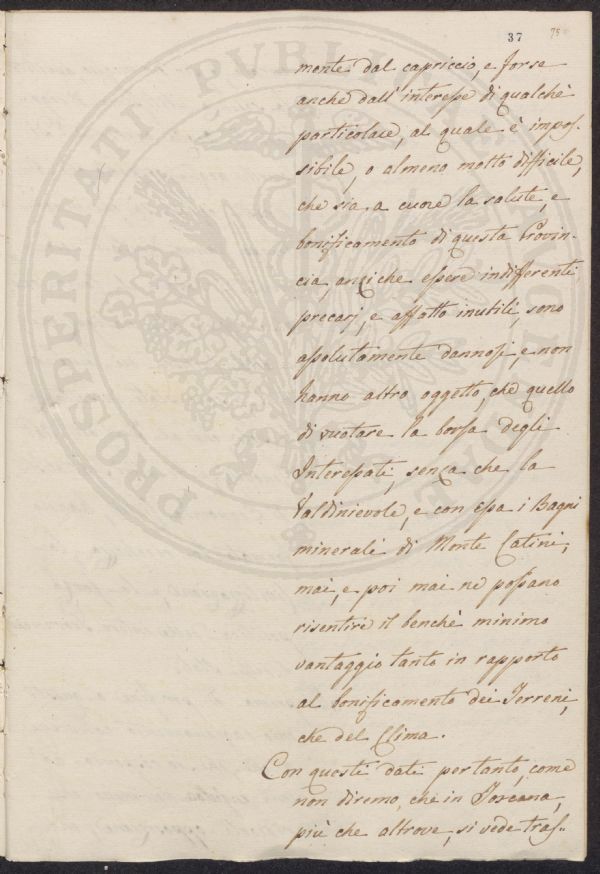 37 75
mente dal capriccio, e forse
anche dall'interesse di qualche
particolare, al quale è impos-
sibile, o almeno molto difficile,
che sia a cuore la salute, e
bonificamento di questa Provin-
cia, anzi che essere indifferenti
precarj, e affatto inutili, sono
assolutamente dannosi, e non
hanno altro oggetto, che quello
di vuotare la borsa degli
Interessati, senza che la
Valdinievole, e con essa i Bagni
minerali di Monte Catini,
mai, e poi mai ne possano
risentire il benchè minimo
vantaggio tanto in rapporto
al bonificamento dei Terreni,
che del Clima.
Con questi dati pertanto, come
non diremo, che in Toscana,
più che altrove, si vede tras-
PROSPERITATI PUBLICAE